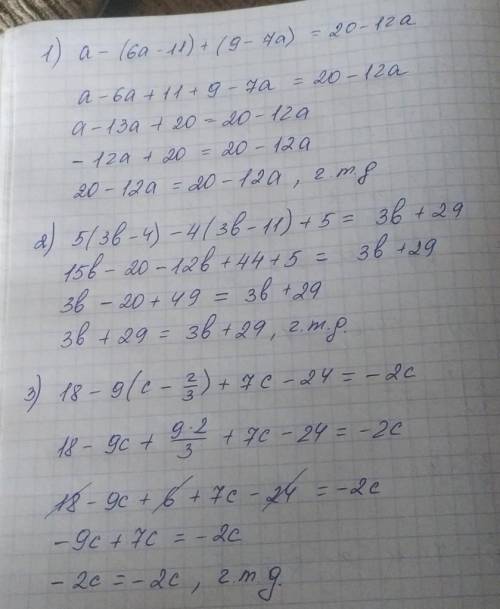 1) a - (6a - 11) + (9 - 7a) = 20 - 12a
a - 6a + 11 + 9 - 7a = 20 - 12a
a - 13a + 20 = 20 - 12a
- 12a + 20 = 20 - 12a
20 - 12a = 20 - 12a, ч.т.д
2) 5(3b - 4) - 4(3b - 11) + 5 = 3b + 29
15b - 20 - 12b + 44 + 5 = 3b + 29
3b - 20 + 49 = 3b + 29
3b + 29 = 3b + 29, ч.т.д.
3) 18 - 9(c - 2/3) + 7c - 24 = - 2c
18 - 9c + 9·2/3 + 7c - 24 = -2c
18 - 9c + 6 + 7c - 24 = -2c
- 9c + 7c = - 2c
- 2c = - 2c, ч.т.д.